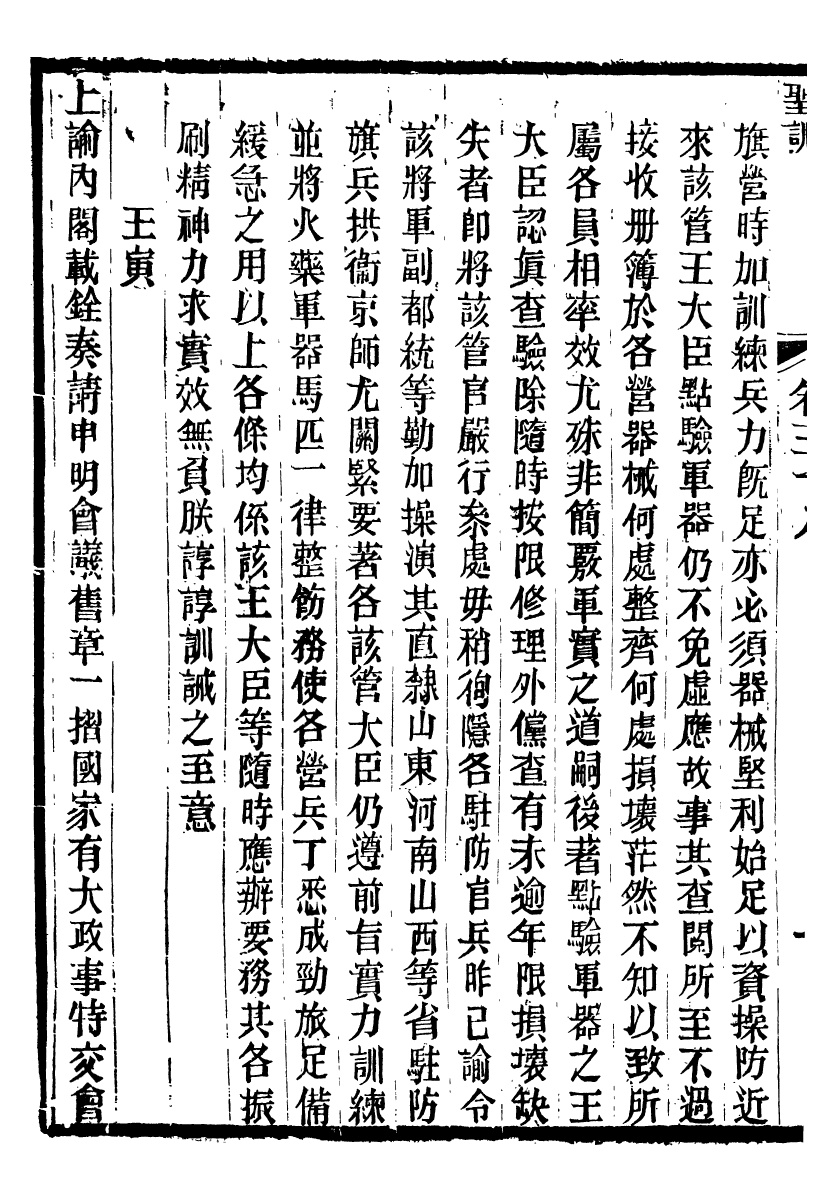 聖訓
旗營時加訓練兵力旣足亦必須器械堅利始足以資操防近
來該管王大臣點驗軍器仍不免虛應故事其查閱所至不過
接收册簿於各營器械何處整齊何處損壞茫然不知以致所
屬各員相率效尤殊非簡覈軍實之道嗣後著點驗軍器之王
大臣認眞查驗除隨時按限修理外儻查有未逾年限損壞缺
失者卽將該管官嚴行參處毋稍徇隱各駐防官兵昨已諭令
該將軍副都統等勤加操演其直隸山東河南山西等省駐防
旗兵拱衞京師尤關緊要著各該管大臣仍遵前旨實力訓練
並將火藥軍器馬匹一律整飭務使各營兵丁悉成勁旅足備
緩急之用以上各條均係該王大臣等隨時應辦要務其各振
刷精神力求實效無負朕諄諄訓誡之至意
王寅
上諭內閣載銓奏請申明會議舊章一摺國家有大政事特交會